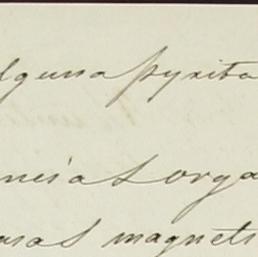 lguna pyrita
ncias orga
uras magneti